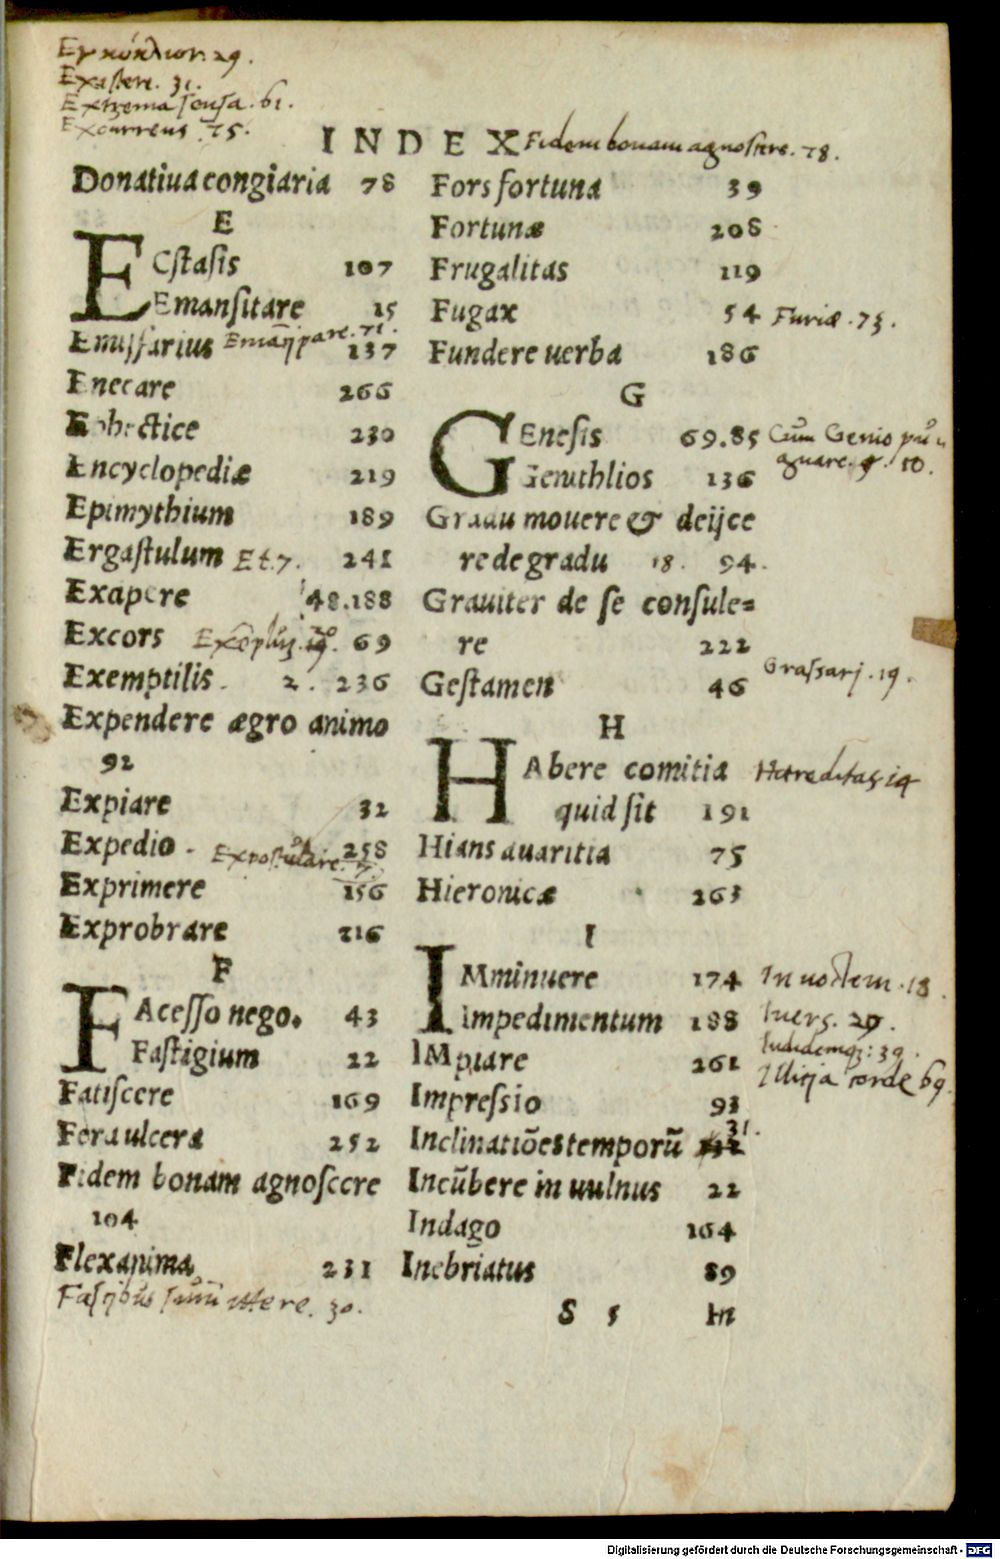 Εγκύκλιον. 29.
Existere. 31.
Extrema 61.
Excurrens. 75.
INDEX
Fidem bonam agnoscere. 78.
Donatiua congiaria 78
E
ECstasis 107
Emansitare 15
Emissarius 137
71.
Enecare 266
230
Encyclopediæ 219
Epimythium 189
Ergastulum Et. 7. 241
Exapere 48.188
Excors 69
Exemptilis. 2. 236
Expendere ægro animo
92
Expiare 32
Expedio. 258
Expostulare.
Exprimere 156
Exprobrare 216
F
FAcesso nego. 43
Fastigium 22
Fatiscere 169
Fera ulcera 252
Fidem bonam agnoscere
104
Flexanima 231
Fascibus 30.
Fors fortuna 39
Fortunæ 208
Frugalitas 119
Fugax 54
Furiæ. 73.
Fundere uerba 186
G
GEnesis 69.85
Cum Genio pu
gnare. 10.
Genithlios 136
Gradu mouere & deijce
re de gradu 18. 94.
Grauiter de se consule=
re 222
Grassari. 19.
Gestamen 46
H
HAbere comitia
Hæreditas 14
quid sit 191
Hians auaritia 75
Hieronicæ 263
I
IMminuere 174
In noctem. 18.
Impedimentum 188
IMpiare 261
39.
69.
Impressio 93
Inclinatiōes temporū 31.
Incūbere in uulnus 22
Indago 164
Inebriatus 89
S 5 In
Digitalisierung gefördert durch die Deutsche Forschungsgemeinschaft - DFG